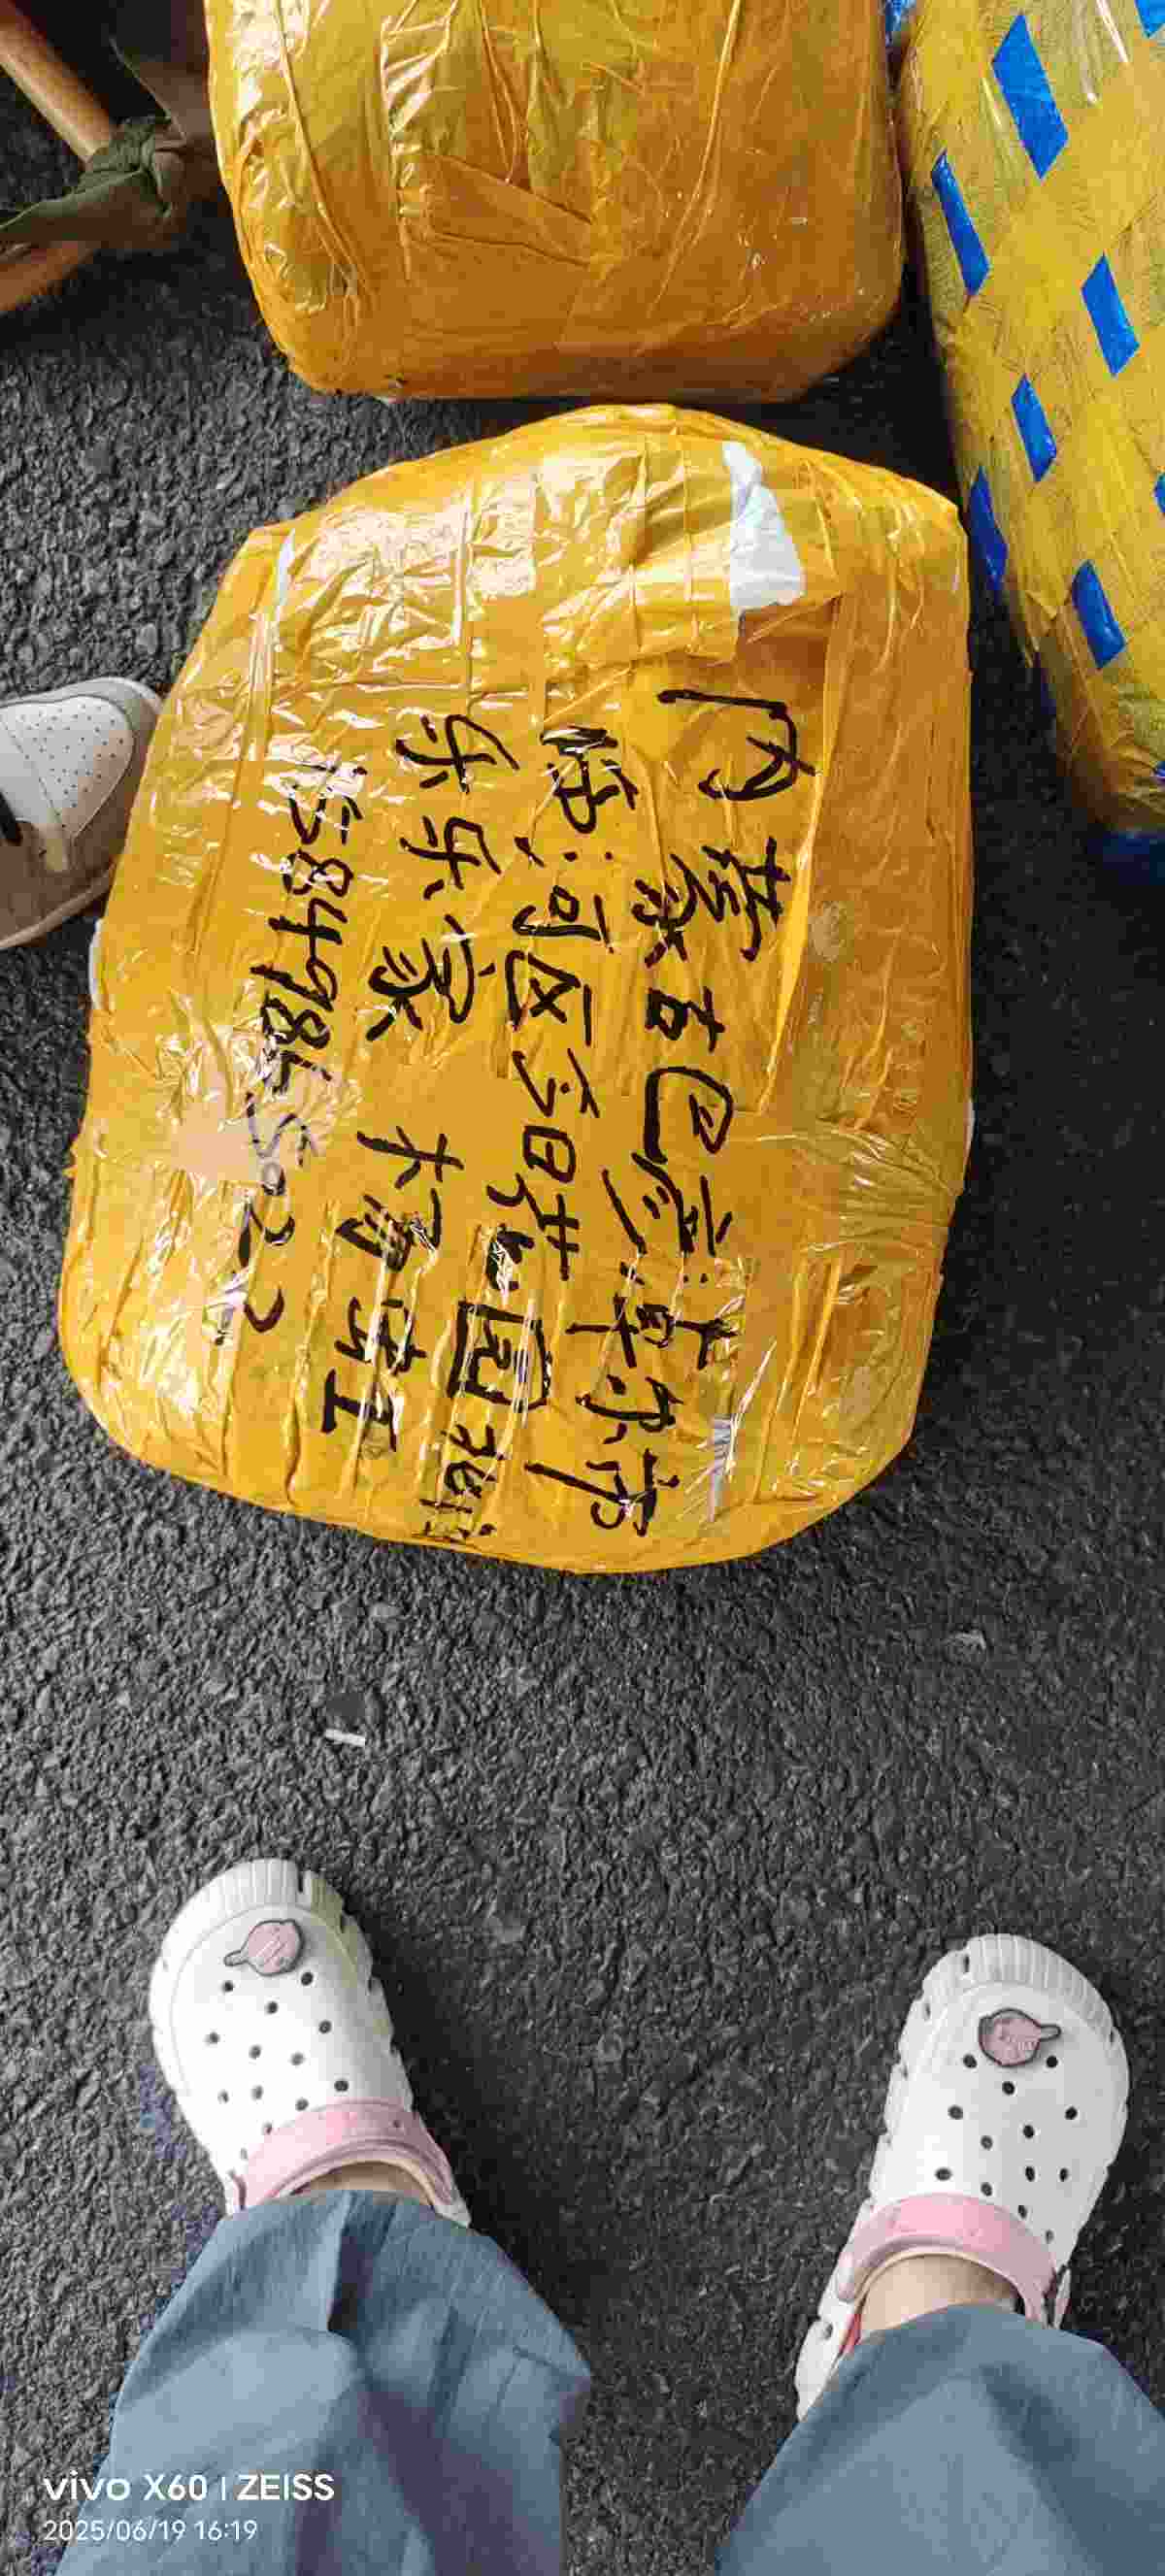 内蒙古巴彦淖尔市
临河区今日花园
乐乐家
15849865022
vivo X60 | ZEISS
2025/06/19 16:19